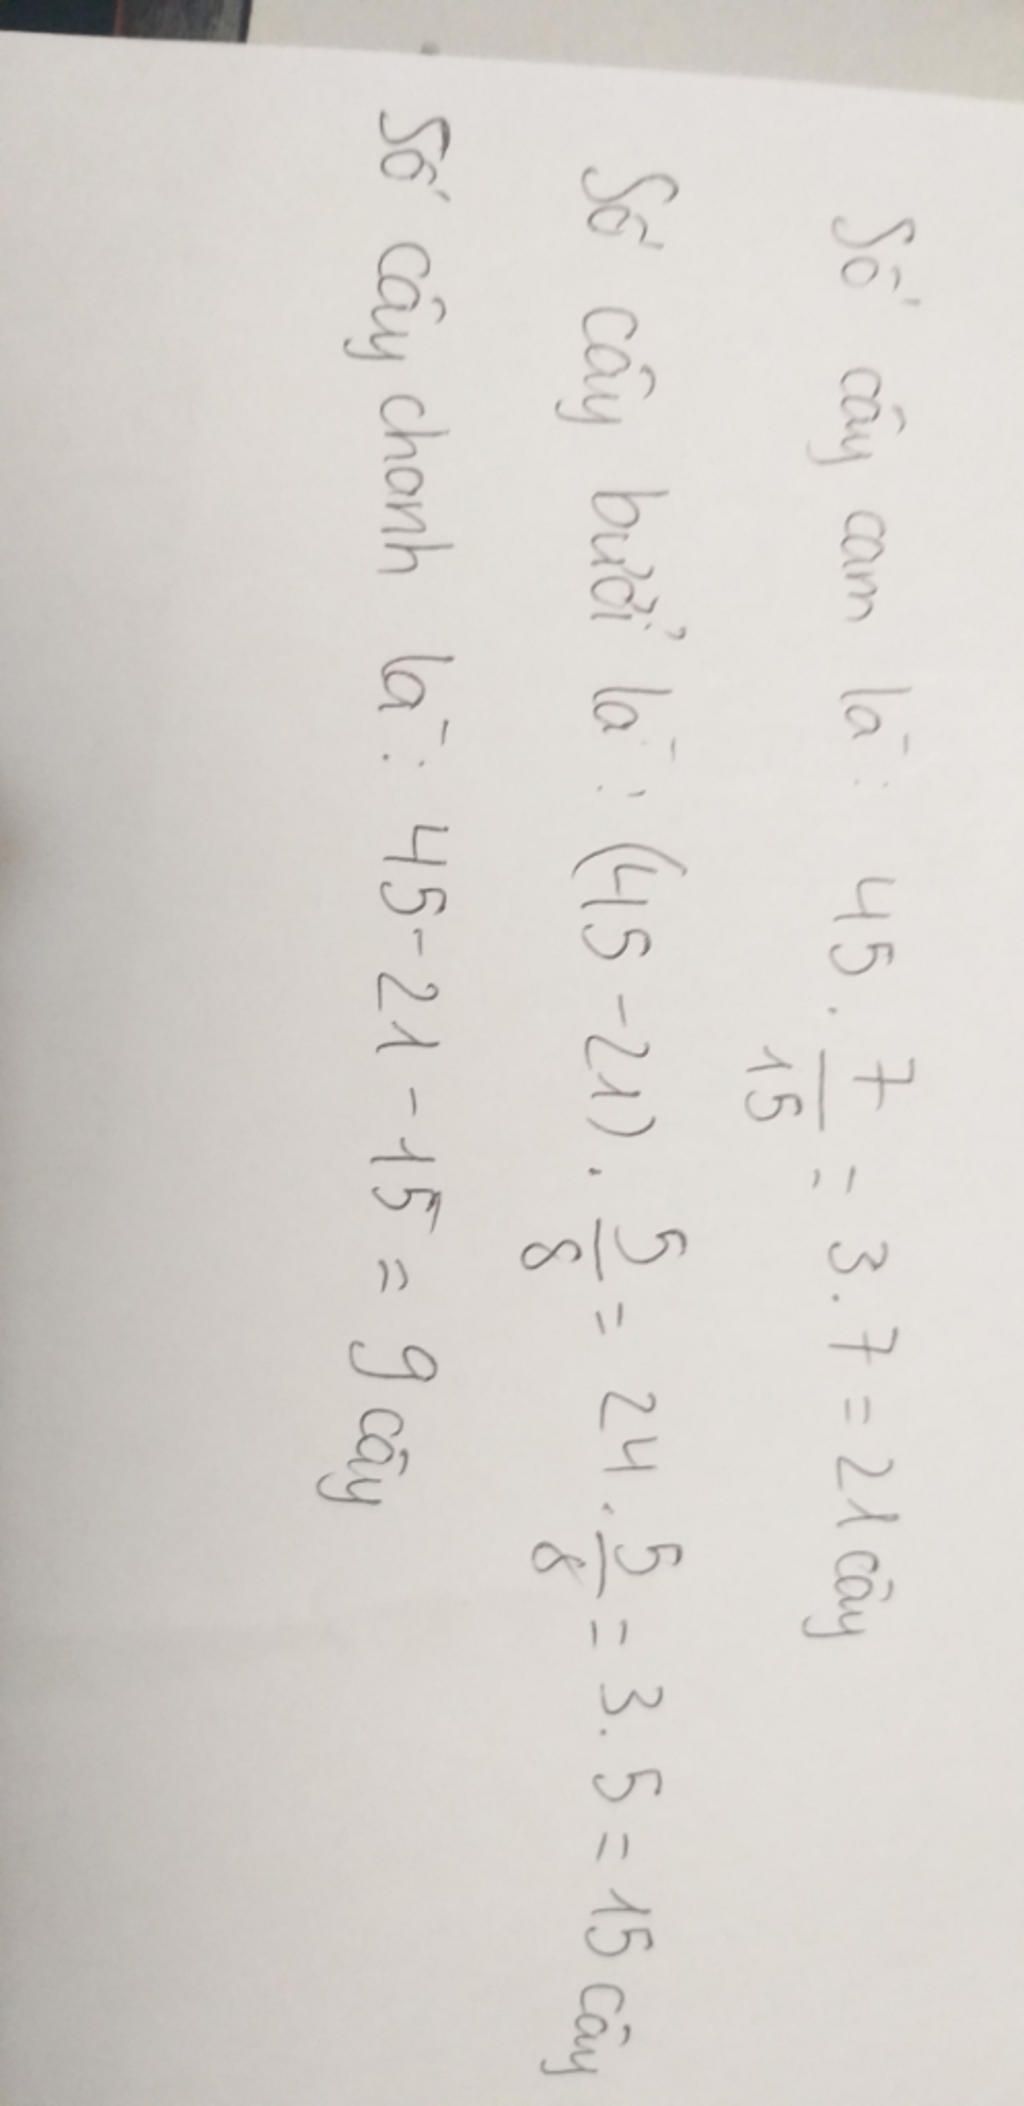 Số cây cam là: 45 . 7/15 = 3.7 = 21 cây
Số cây bưởi là: (45 - 21) . 5/8 = 24 . 5/8 = 3.5 = 15 cây
Số cây chanh là: 45 - 21 - 15 = 9 cây